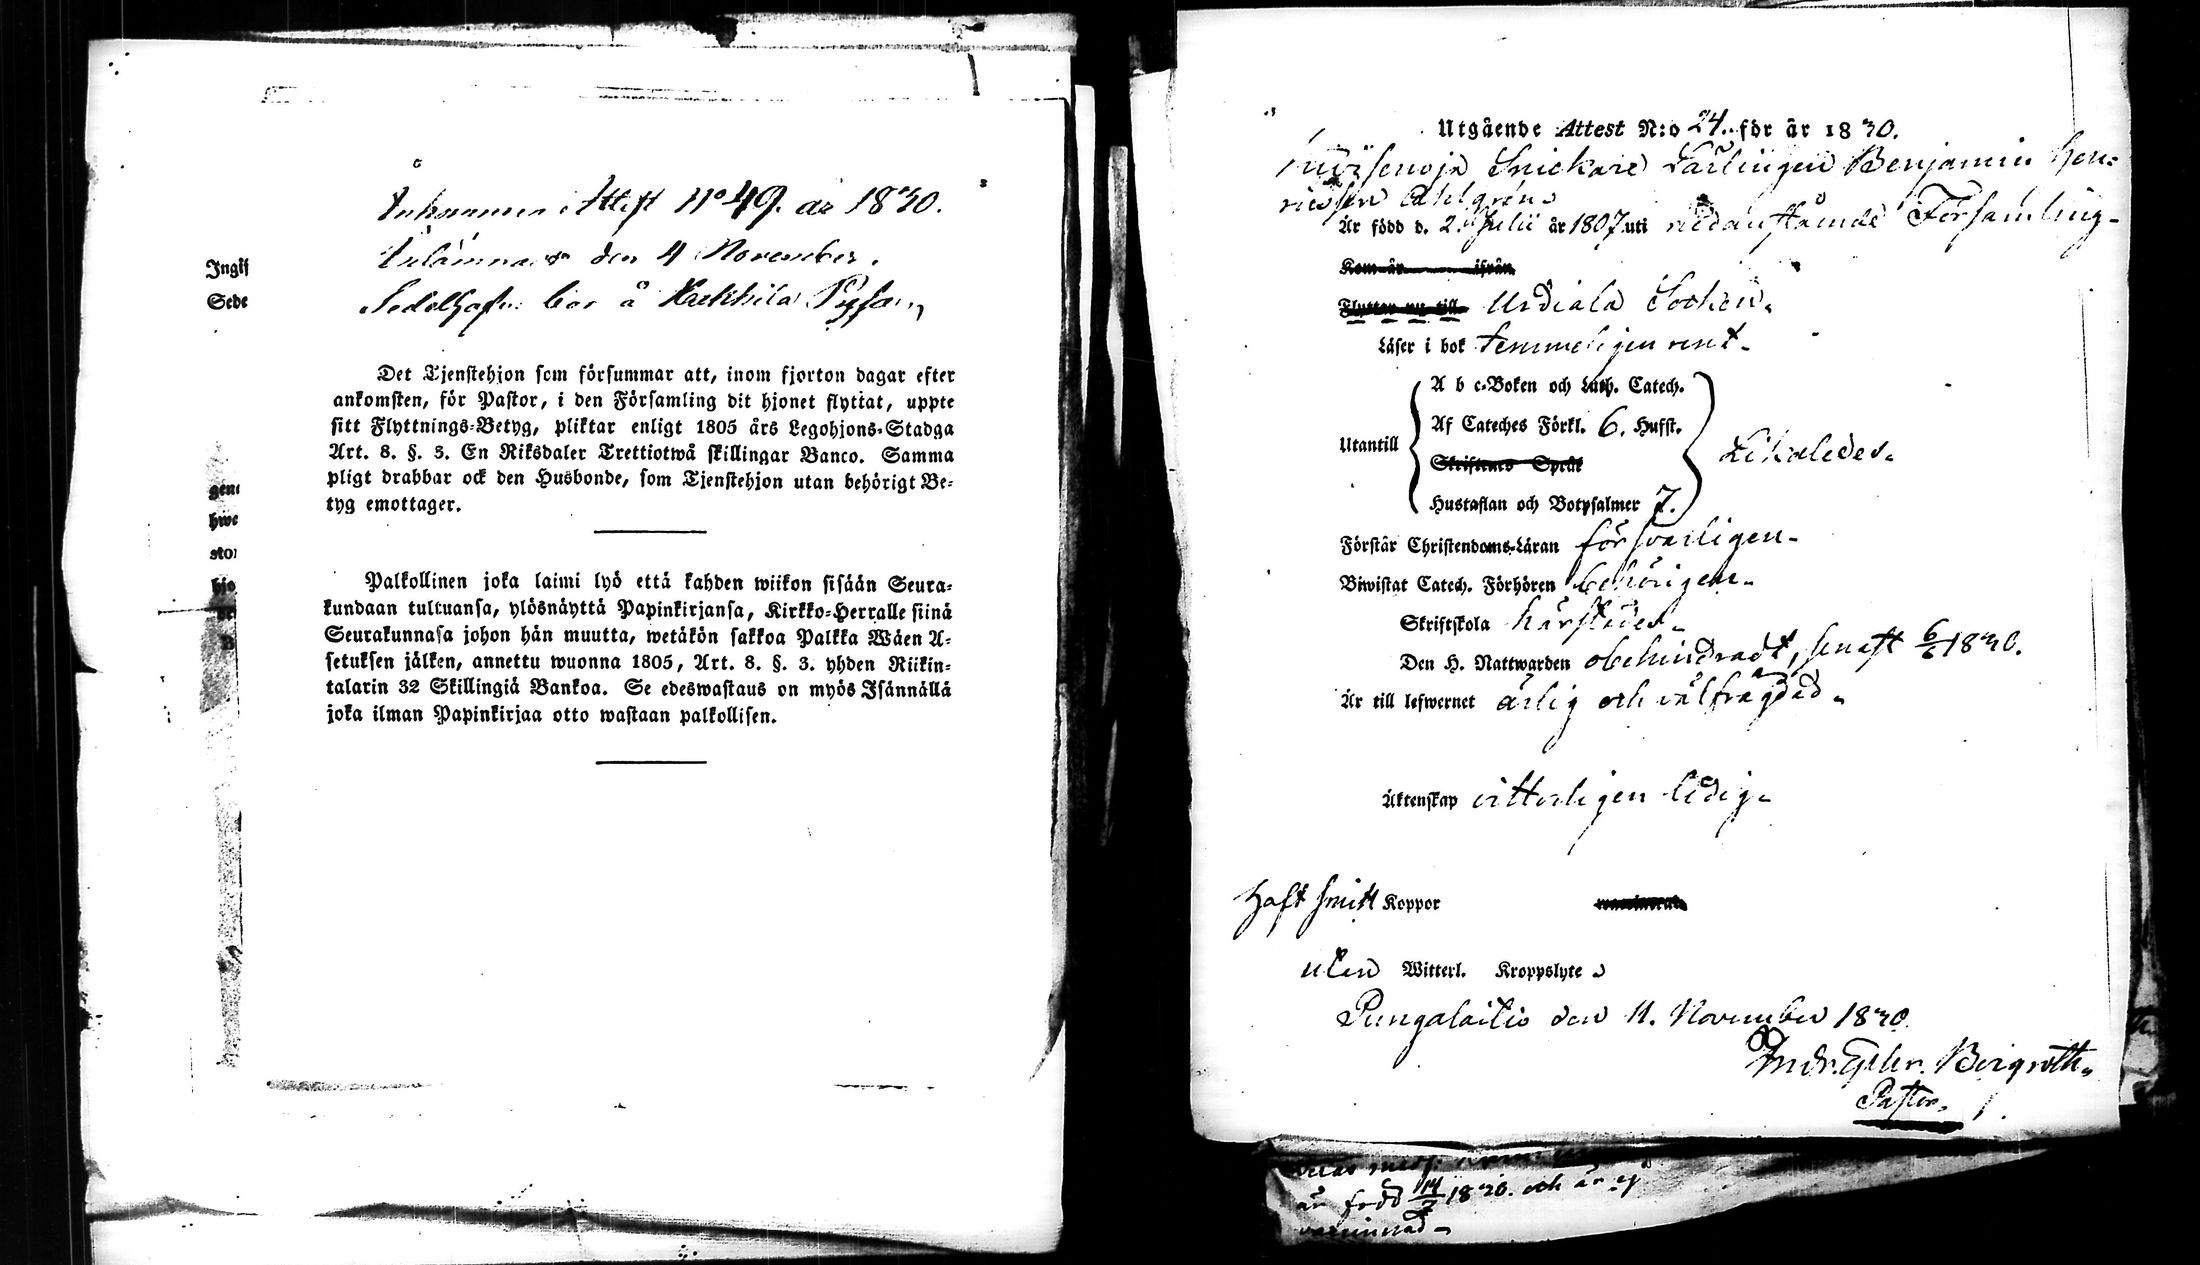 Inkommen Attest No 49. år 1830.
Inlämnas den 4 November.
Sedelhafv. bor å Kekkila
Jngif
Sede
Det Tjenstehjon som försummar att, inom fjorton dagar efter
ankomsten, för Pastor, i den Församling dit hjonet flyttat, uppte
sitt Flyttnings-Betyg, pliktar enligt 1805 års Legohjons-Stadga
Art. 8. §. 3. En Riksdaler Trettiotwå skillingar Banco. Samma
pligt drabbar ock den Husbonde, som Tjenstehjon utan behörigt Be-
tyg emottager.
gene
hwe
stor
hjo
Palkollinen joka laimi lyö että kahden wiikon sisään Seura-
kundaan tultuansa, ylösnäyttä Papinkirjansa, Kirkko-Herralle siinä
Seurakunnasa johon hän muutta, wetäkön sakkoa Palkka Wäen A-
setuksen jälken, annettu wuonna 1805, Art. 8. §. 3. yhden Riikin-
talarin 32 Skillingiä Bankoa. Se edeswastaus on myös Isännällä
joka ilman Papinkirjaa otto wastaan palkollisen.
Utgående Attest N:o 24. för år 1830.
Snickare Lärlingen Benjamin Hen-
ricsson Ahlgrén
Är född d. 2. Julii år 1807 uti nedanstående Församling
Kom år ifrån
Flyttar nu till Urdiala Socken.
Läser i bok temmeligen rent.
A b c-Boken och Luth. Catech.
Af Cateches Förkl. 6. Hufst.
Utantill
Likaledes.
Skriftenes Språk
Hustaflan och Botpsalmer 7.
Förstår Christendoms-Läran försvarligen.
Biwistat Catech. Förhören behörigen.
Skriftskola härstädes.
Den H. Nattwarden obehindradt, senast 6/6 1830.
Är till lefwernet ärlig och välfrägdad.
Äktenskap vitterligen ledig.
Haft smitt Koppor
utan Witterl. Kroppslyte
Pungalaitio den 11. November 1830.
Bergroth.
Pastor.
är född 14/7 1830. och är ej
vaccinerad.